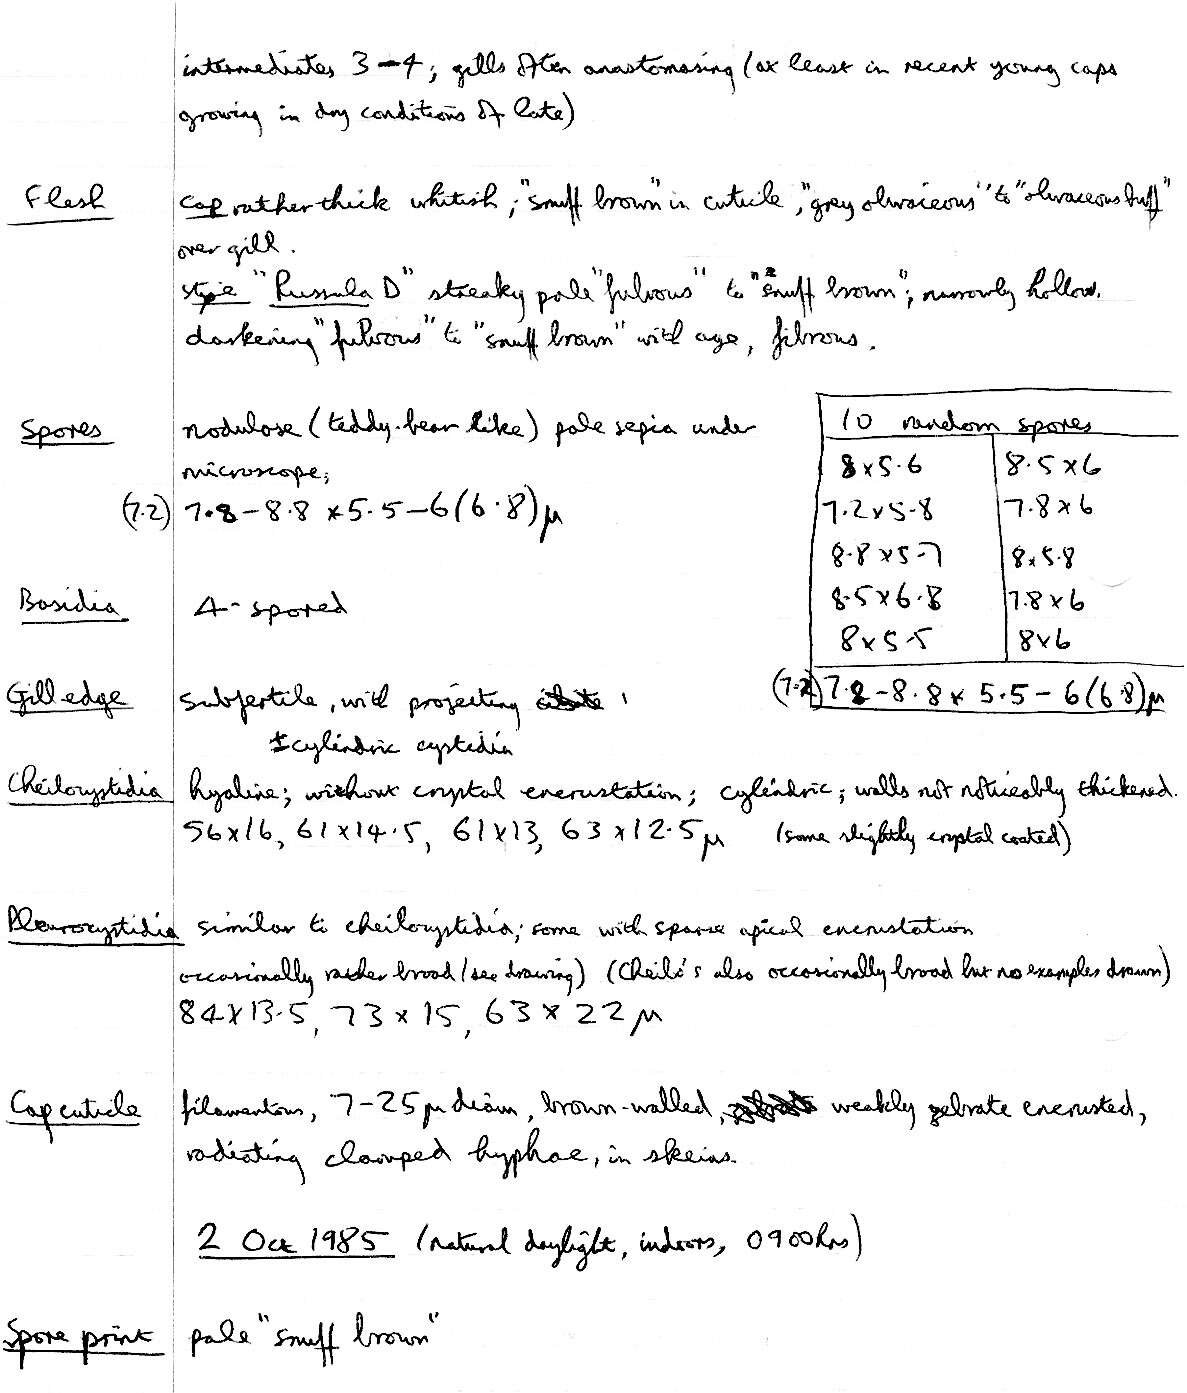 intermediates 3-4; gills often anastomosing (at least in recent young caps
growing in dry conditions of late)
Flesh cap rather thick whitish; "snuff brown" in cuticle, "grey olivaceous" to "olivaceous buff"
over gill.
stipe "Russula D" streaky pale "fulvous" to "snuff brown"; narrowly hollow.
darkening "fulvous" to "snuff brown" with age, fibrous.
Spores nodulose (teddy-bear like) pale sepia under
microscope;
(7.2) 7.8-8.8 x 5.5-6(6.8)μ
10 random spores
8x5.6 8.5x6
7.2x5.8 7.8x6
8.8x5.7 8x5.8
8.5x6.8 7.8x6
8x5.5 8x6
(7.2) 7.8-8.8 x 5.5-6(6.8)μ
Basidia 4-spored
Gill edge subfertile, with projecting
±cylindric cystidia
Cheilocystidia hyaline; without crystal encrustation; cylindric; walls not noticeably thickened.
56x16, 61x14.5, 61x13, 63x12.5μ (some slightly crystal coated)
Pleurocystidia similar to cheilocystidia; some with sparse apical encrustation
occasionally rather broad (see drawing) (Cheilo's also occasionally broad but no examples drawn)
84x13.5, 73x15, 63x22μ
Cap cuticle filamentous, 7-25μ diam, brown-walled, weakly zebrate encrusted,
radiating clamped hyphae, in skeins.
2 Oct 1985 (natural daylight, indoors, 0900hrs)
Spore print pale "snuff brown"